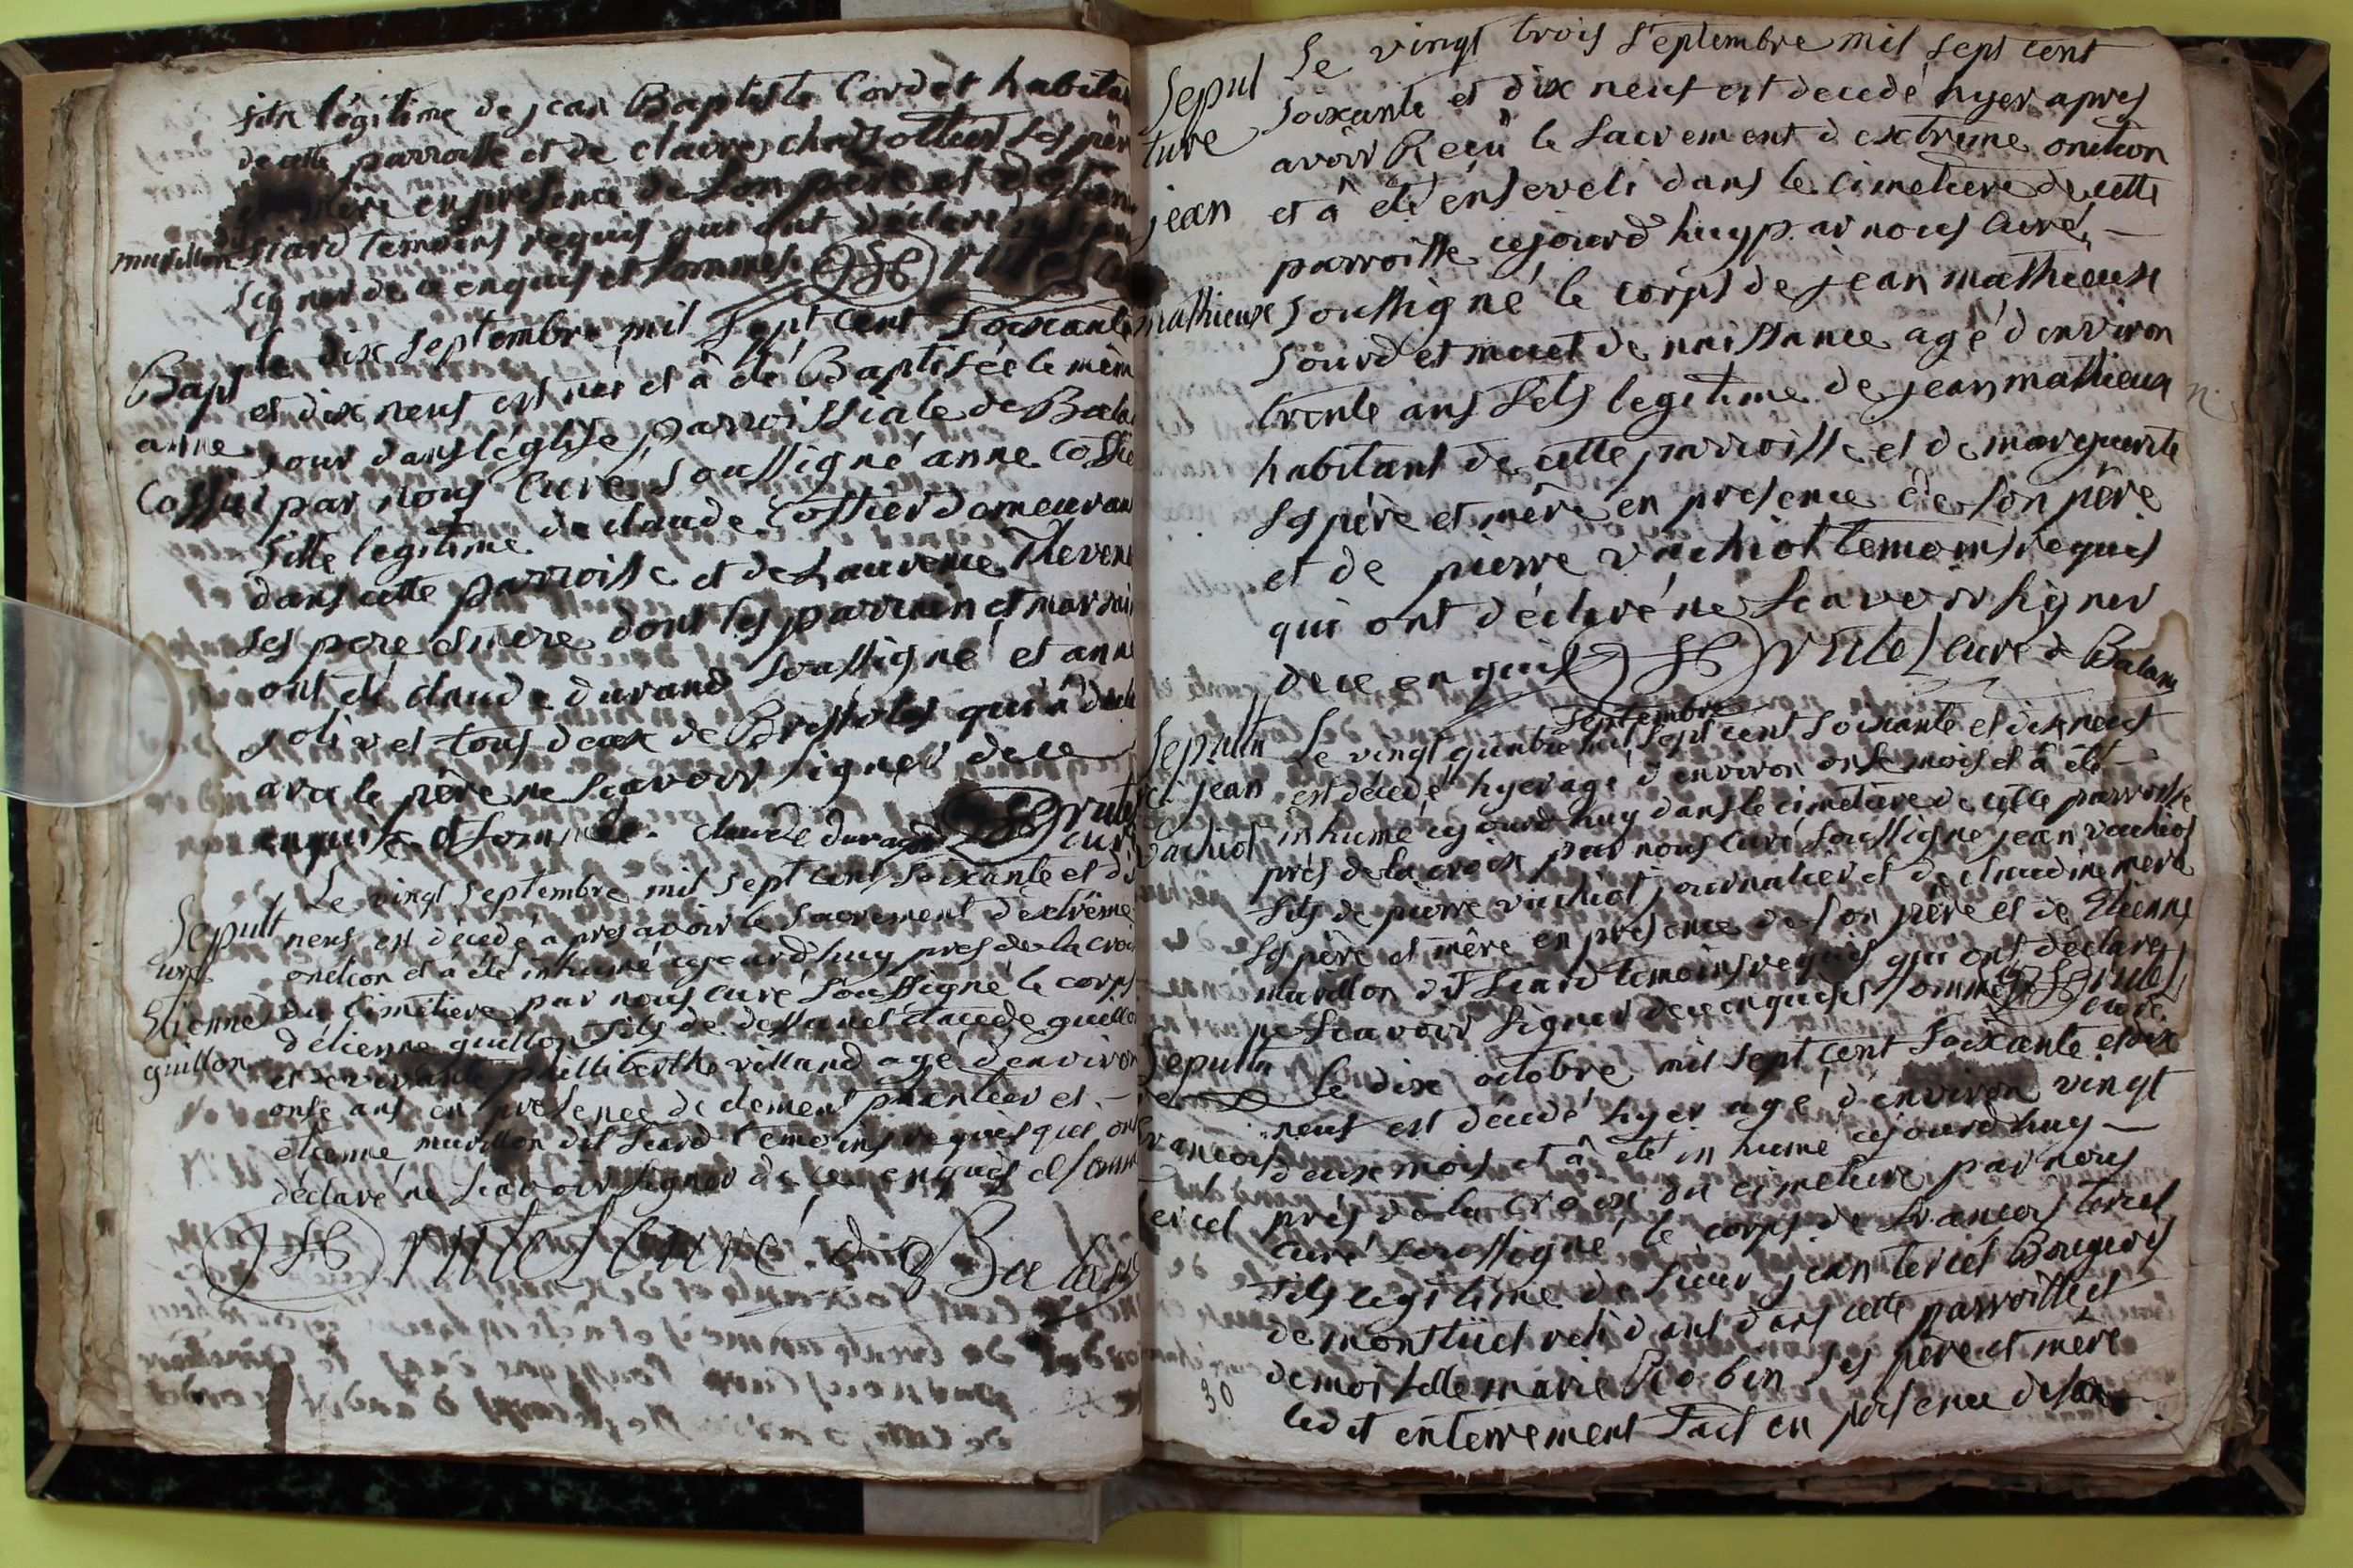 fils légitime de jean Baptiste Cordet habita
de cette parroisse et de claire chassottier ses pèr
mère en presence de son père et
murillon siard temoins requis qui ont déclaré
signer de ce enquis et sommés
Le dix septembre mil sept cent soixante
Bapt et dix neuf est née et à été Baptisée le mêm
anne jour dans l'église parroissiale de Bala
Cossier par nous Curé soussigné anne Cossie
fille legitime de claude Cossier demeuran
dans cette parroisse et de Laurence Theven
ses pere et mere dont les parrain et marrain
ont été claude durand soussigné et anne
joliv et tous deux de Bressoles qui à décla
avec le père ne scavoir signer de ce
enquis et sommés. claude durand Brutel curé
Le vingt septembre mil sept cent soixante et di
Sepult neuf est décedé apres avoir le sacrement d'extrême
ure onction et à été inhumé cejourdhuy pres de la croi
Etienne du cimetiere par nous curé soussigné le corps
guillon d'étienne guillon fils de deffunct claude guillon
et de vivante philliberthe villand agé d'environ
onse ans en presence de clement et
etienne murillon dit siard temoins requis qui ont
déclaré ne scavoir signer de ce enquis et somm
Brutel curé de Balan
Le vingt trois septembre mil sept cent
Sepul soixante et dix neuf est decedé hyer apres
ture avoir Reçu le sacrement d'extreme onction
jean et à été enseveli dans le cimetiere de cette
parroisse cejourd'huy par nous curé
mathieux soussigné le corps de jean mathieux
sourd et muet de naissance agé d'environ
trente ans fils legitime de jean mathieux
habitant de cette parroisse et de marguerite
ses père et mère en presence de son père
et de pierre vachiot temoins requis
qui ont déclaré ne scavoir signer
de ce enquis Brutel curé de Balan
septembre
Sepultu Le vingt quinbre mil sept cent soixante et dix neuf
et jean est décedé hyer agé d'environ onse mois et à été
vachiot inhumé cejourd'huy dans le cimetiere de cette parroisse
près de la croix par nous curé soussigné jean vachiot
fils de pierre vachiot journalier et de claudine
ses père et mère en presence de son père et de Etienne
murillon dit siard temoins requis qui ont déclaré
ne scavoir signer de ce enquis et sommés Brutel curé
Sepultu Le dix octobre mil sept cent soixante et dix
neuf est décedé hyer agé d'environ vingt
francois deux mois et à été inhumé cejourd'huy
près de la croix du cimetiere par nous
tercel curé soussigné le corps de francois tercel
fils legitime de sieur jean tercel Bourgeois
de montluel residant dans cette parroisse et
demoiselle marie Robin ses père et mère
ledit enterrement fait en presence de son
30